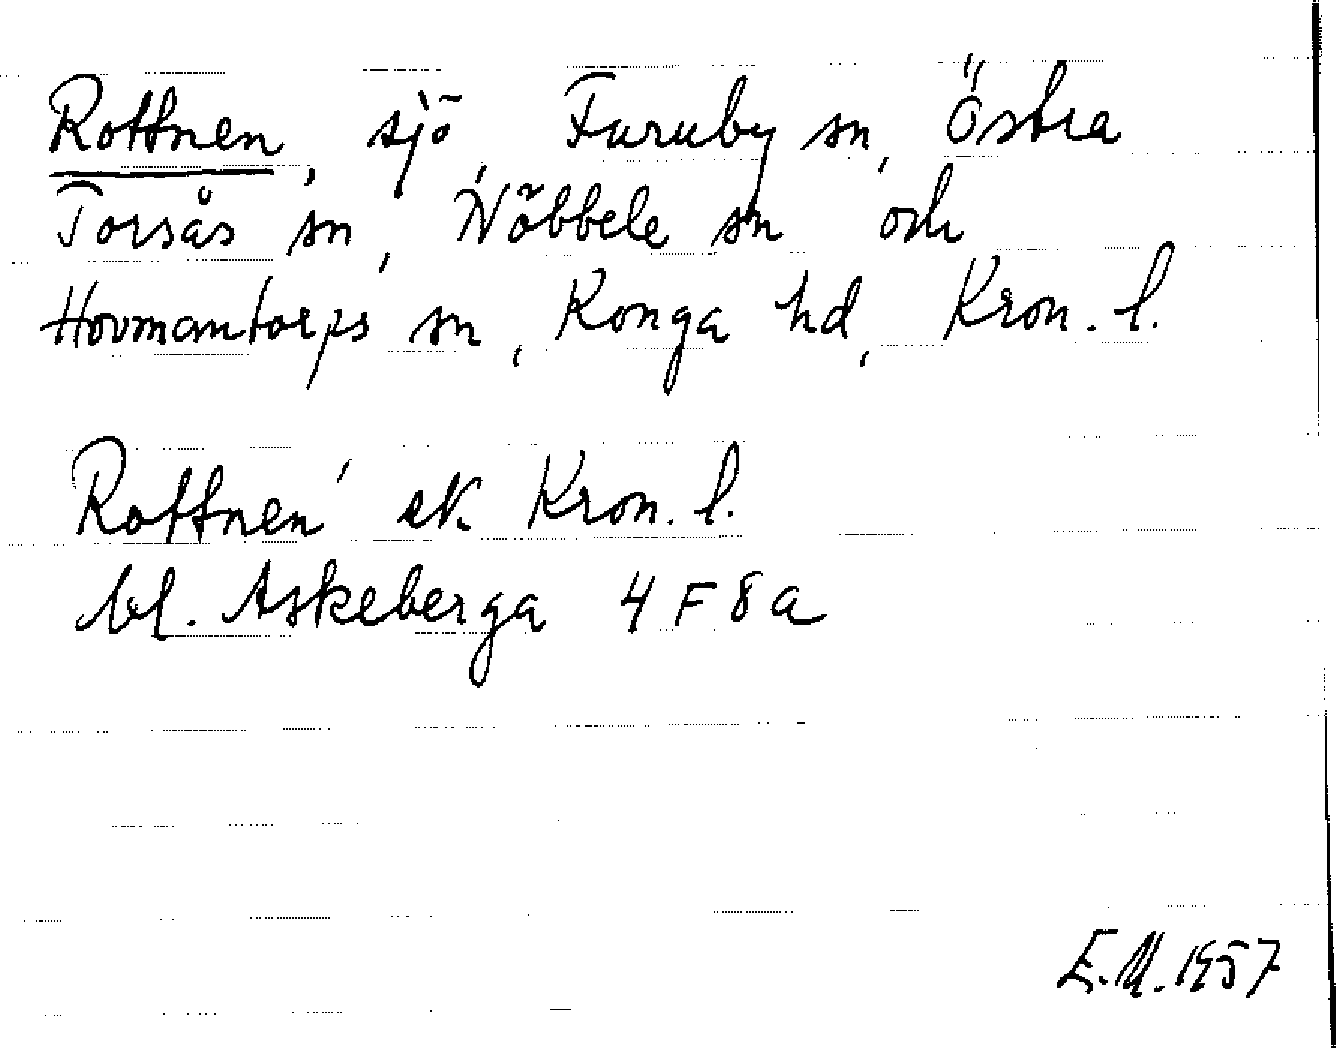 Rottnen, sjö, Furuby sn, Östra
Torsås sn, Nöbbele sn och
Hovmantorps sn, Konga hd, Kron. l.
Rottnen' ek Kron. l.
bl. Askeberga 4 F 8 a
E.U. 1957